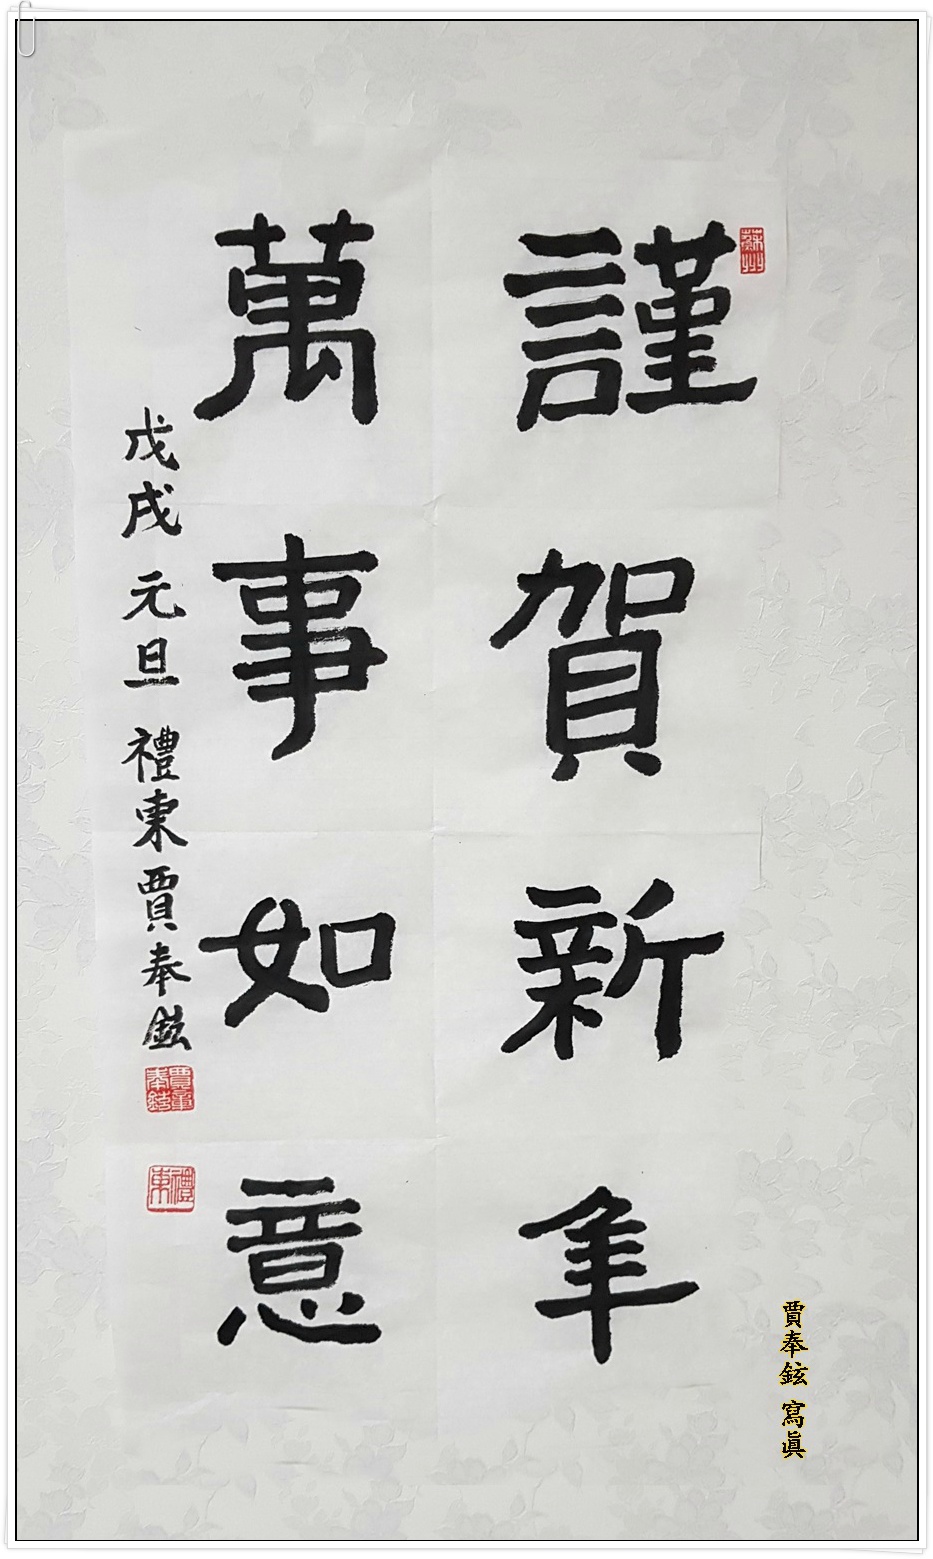 謹賀新年
萬事如意
戊戌 元旦 禮東賈奉鉉
賈奉鉉
禮東
賈奉鉉 寫眞